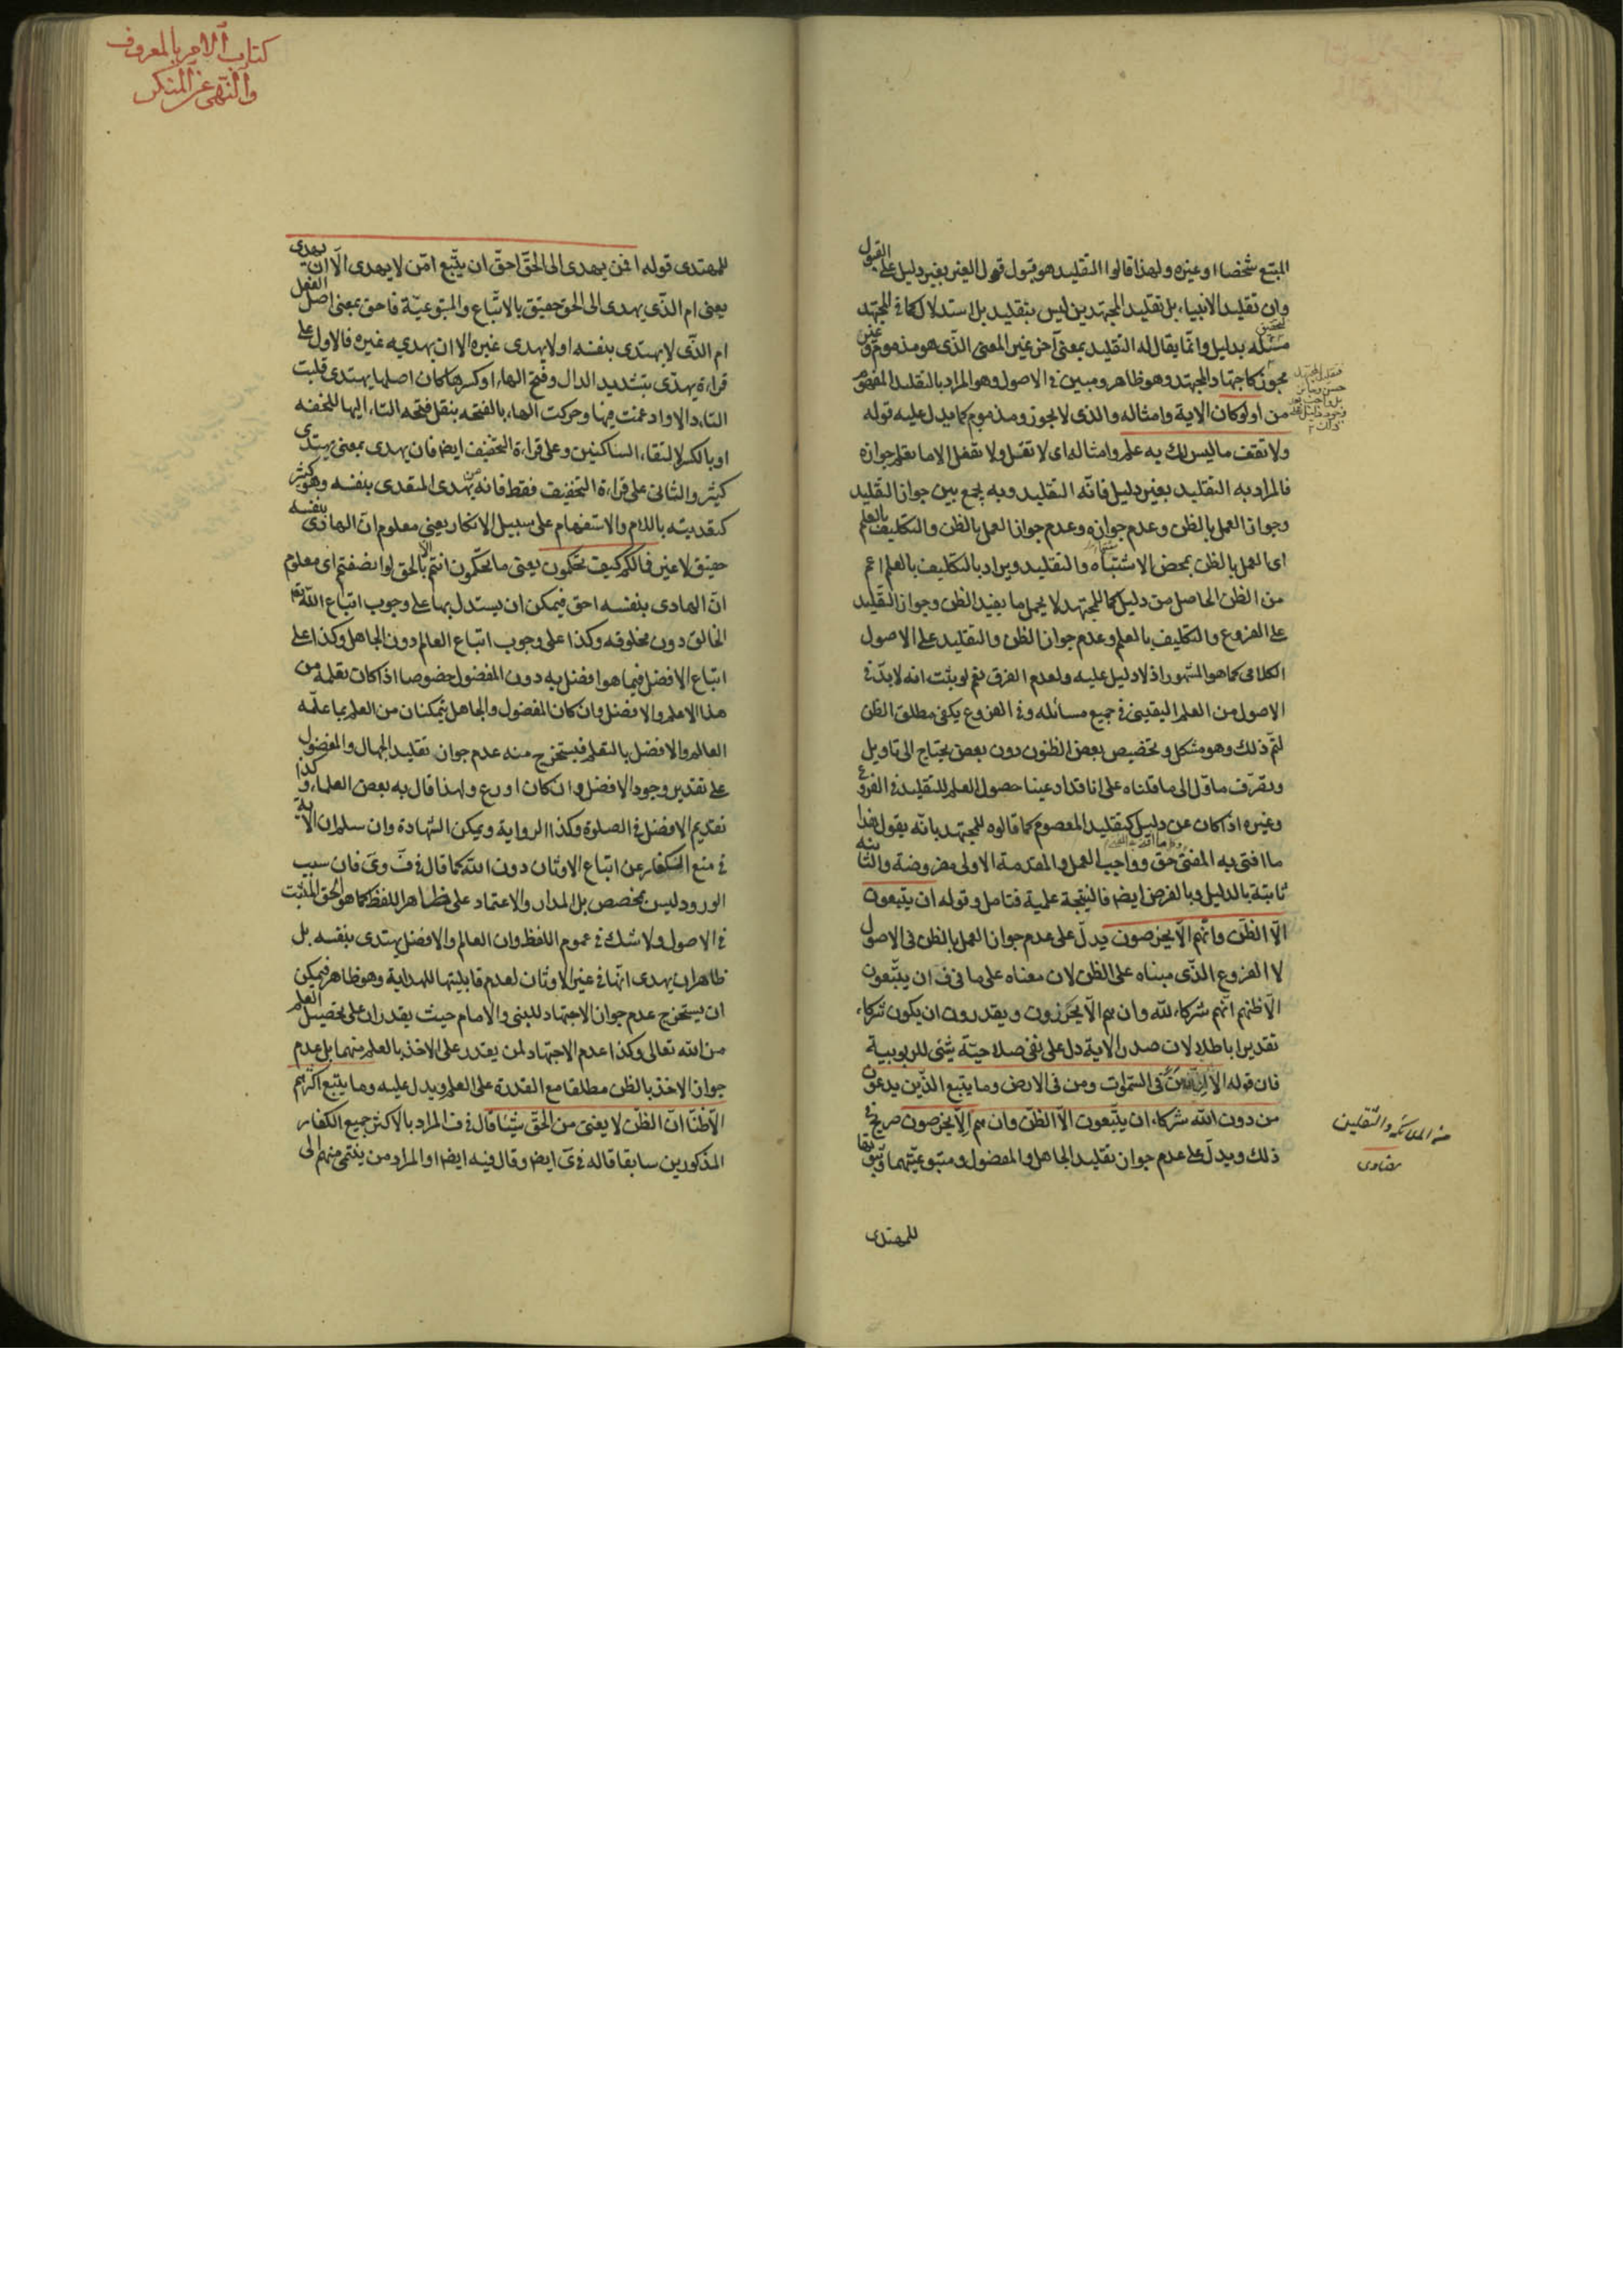 المتبع شخصا او غيره ولهذا قالوا التقليد هو قبول قول الغير بغير دليل على القبول
وان تقليد الانبياء بل تقليد المجتهدين ليس بتقليد بل استدلال كما فى المجتهد
مسئلة بدليل وانما يقال له التقليد بمعنى آخر غير المعنى الذى هو مذموم و غير
مجوز كاجتهاد المجتهد وهو ظاهر ومبين فى الاصول وهو المراد بالتقليد المفهوم
من اولو كان الاية وامثاله والذى لا يجوز ومذموم كما يدل عليه قوله
ولا تقف ما ليس لك به علم وامثاله اى لا تقل ولا تفعل الا ما تعلم جوازه
فالمراد به التقليد بغير دليل فانه التقليد وبه يجمع بين جواز التقليد
وجواز العمل بالظن وعدم جوازه وعدم جواز العمل بالظن والتكليف بالعلم
اى العمل بالظن بمحض الاشتباه والتقليد ويراد بالتكليف بالعلم اعم
من الظن الحاصل من دليل كما للمجتهد لا يحمل ما يفيد الظن وجواز التقليد
على الفروع والتكليف بالعلم وعدم جواز الظن والتقليد على الاصول
الكلامى كما هو المشهور اذ لا دليل عليه ولعدم الفرق نعم لو ثبت انه لابد فى
الاصول من العلم اليقينى فى جميع مسائله وفى الفروع يكفى مطلق الظن
لتم ذلك وهو مشكل وتخصيص بعض الظنون دون بعض يحتاج الى تاويل
وتصرف ماول الى ما قلناه على انا قد ادعينا حصول العلم للتقليد فى الفروع
وغيره اذا كان عن دليل كتقليد المعصوم كما قالوه للمجتهد بانه يقول هذا
ما افتى به المفتى حق وواجب العمل والمقدمة الاولى مفروضة والثانية
ثابتة بالدليل وبالفرض ايضا فالنتيجة علمية فتامل وقوله ان يتبعون
الا الظن وانهم الا يخرصون يدل على عدم جواز العمل بالظن فى الاصول
لا الفروع الذى مبناه على الظن لان معناه على ما فى ف ان يتبعون
الا ظنهم انهم شركاء لله وان هم الا يحزرون ويقدرون ان يكون شركاء
تقديرا باطلا لان صدر الاية دل على نفى صلاحية شئ للربوبية
فان قوله الا فى السموات ومن فى الارض وما يتبع الذين يدعون
من دون الله شركاء ان يتبعون الا الظن وان هم الا يخرصون صريح فى
ذلك ويدل على عدم جواز تقليد الجاهل والمفضول ومتبوعيتهما
للمهتدى
من الملائكة والثقلين
بيضاوى
كتاب الامر بالمعروف
والنهى عن المنكر
للمهتدى قوله افمن يهدى الى الحق احق ان يتبع امن لا يهدى الا ان يهدى
يعنى ام الذى يهدى الى الحق حقيق بالاتباع والمتبوعية فاحق بمعنى اصل الفعل
ام الذى لا يهتدى بنفسه او لا يهدى غيره الا ان يهديه غيره فالاول على
قراءة يهدى بتشديد الدال وفتح الهاء او كسرها كان اصلها يهتدى قلبت
التاء دالا وادغمت فيها وحركت الهاء بالفتحه بنقل فتحه التاء اليها للخفه
او بالكسر لالتقاء الساكنين وعلى قراءة التخفيف ايضا فان يهدى بمعنى يهتدى
كثير والثانى على قراءة التخفيف فقط فانه يهدى المتعدى بنفسه وهو كثير
كتعديته باللام والاستفهام على سبيل الانكار يعنى معلوم ان الهادى بنفسه
حقيق لا غير فما لكم كيف تحكمون يعنى ما تحكمون انتم الا بالحق لو انصفتم اى معلوم
ان الهادى بنفسه احق فيمكن ان يستدل بها على وجوب اتباع الله تعالى
الخالق دون مخلوقه وكذا على وجوب اتباع العالم دون الجاهل وكذا على
اتباع الافضل فيما هو افضل به دون المفضول خصوصا اذا كان تعلمه من
هذا الاعلم والافضل وان كان المفضول والجاهل يتمكنان من العلم بما علمه
العالم والافضل بالتعلم فيستخرج منه عدم جواز تقليد الجهال والمفضول
على تقدير وجود الافضل وان كان اورع ولهذا قال به بعض العلماء وكذا
تقديم الافضل فى الصلوة وكذا الرواية ويمكن الشهادة وان سلم ان الاية
فى منع الكفار عن اتباع الاوثان دون الله كما قال فى ف وى فان سبب
الورود ليس بمخصص بل المدار والاعتماد على ظاهر اللفظ كما هو الحق المثبت
فى الاصول ولا شك فى عموم اللفظ وان العالم والافضل يهتدى بنفسه بل
ظاهر ان يهدى انها فى غير الاوثان لعدم قابليتها للهداية وهو ظاهر فيمكن
ان يستخرج عدم جواز الاجتهاد للنبى والامام حيث يقدران على تحصيل العلم
من الله تعالى وكذا عدم الاجتهاد لمن يقدر على الاخذ بالعلم منهما بل عدم
جواز الاخذ بالظن مطلقا مع القدرة على العلم ويدل عليه وما يتبع اكثرهم
الا ظنا ان الظن لا يغنى من الحق شيئا قال فى ف المراد بالاكثر جميع الكفار
المذكورين سابقا قاله فى ى ايضا وقال فيه ايضا او المراد من ينتمى منهم الى